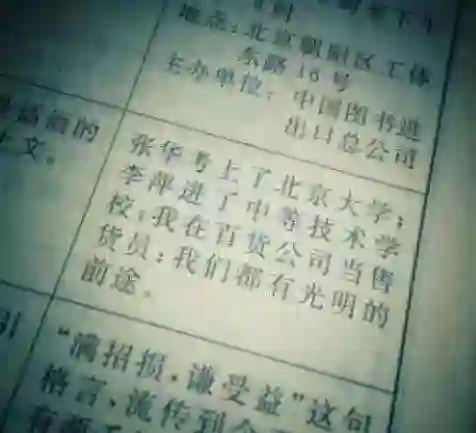 地点:北京朝阳区工体
东路16号
主办单位: 中国图书进
出口总公司
张华考上了北京大学;
李萍进了中等技术学
校;我在百货公司当售
货员:我们都有光明的
前途。
“满招损,谦受益”这句
格言,流传到今